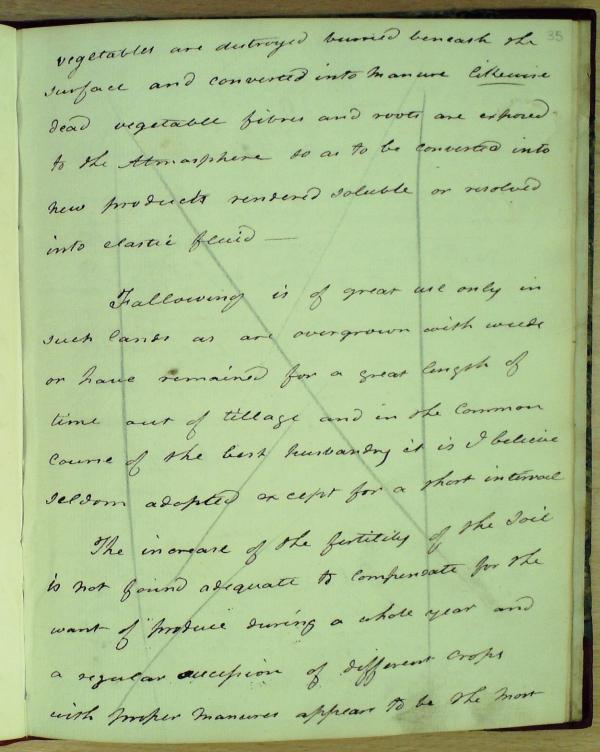 35
vegetables are destroyed burried beneath the
surface and converted into Manure likewise
dead vegetable fibres and roots are exposed
to the Atmosphere so as to be converted into
new products rendered soluble or resolved
into elastic fluid —
Fallowing is of great use only in
such lands as are overgrown with weeds
or have remained for a great length of
time out of tillage and in the Common
Course of the best husbandry it is I believe
seldom adopted except for a short interval
The increase of the fertility of the Soil
is not found adequate to compensate for the
want of produce during a whole year and
a regular succession of different Crops
with proper Manures appears to be the most